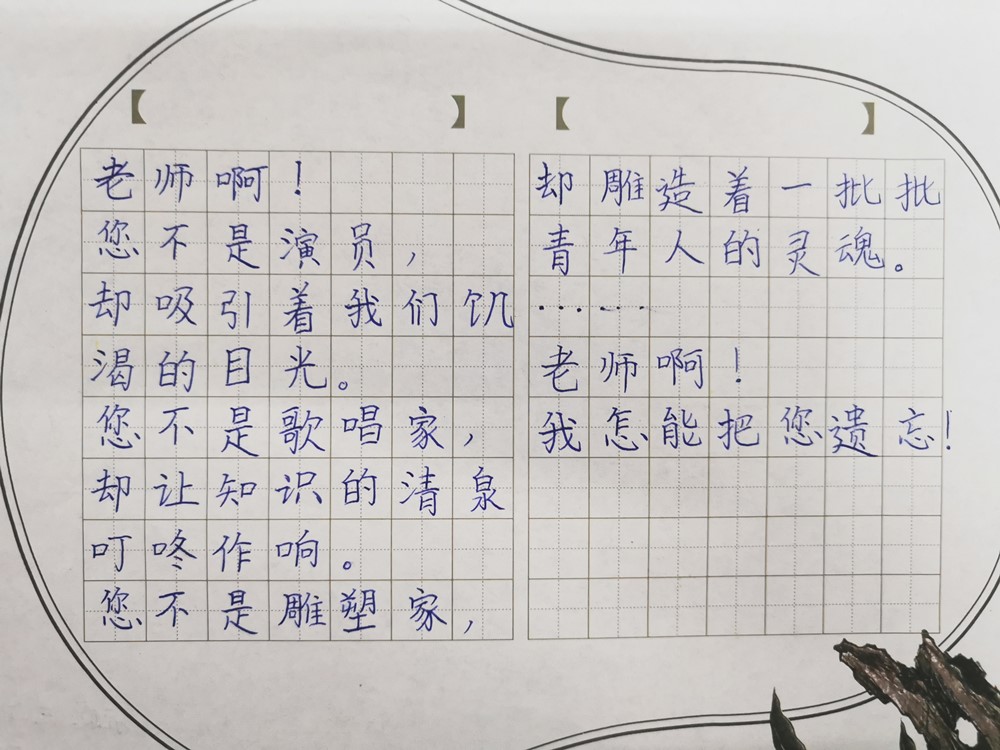 【 】
老师啊！
您不是演员，
却吸引着我们饥
渴的目光。
您不是歌唱家，
却让知识的清泉
叮咚作响。
您不是雕塑家，
【 】
却雕造着一批批
青年人的灵魂。
……
老师啊！
我怎能把您遗忘！